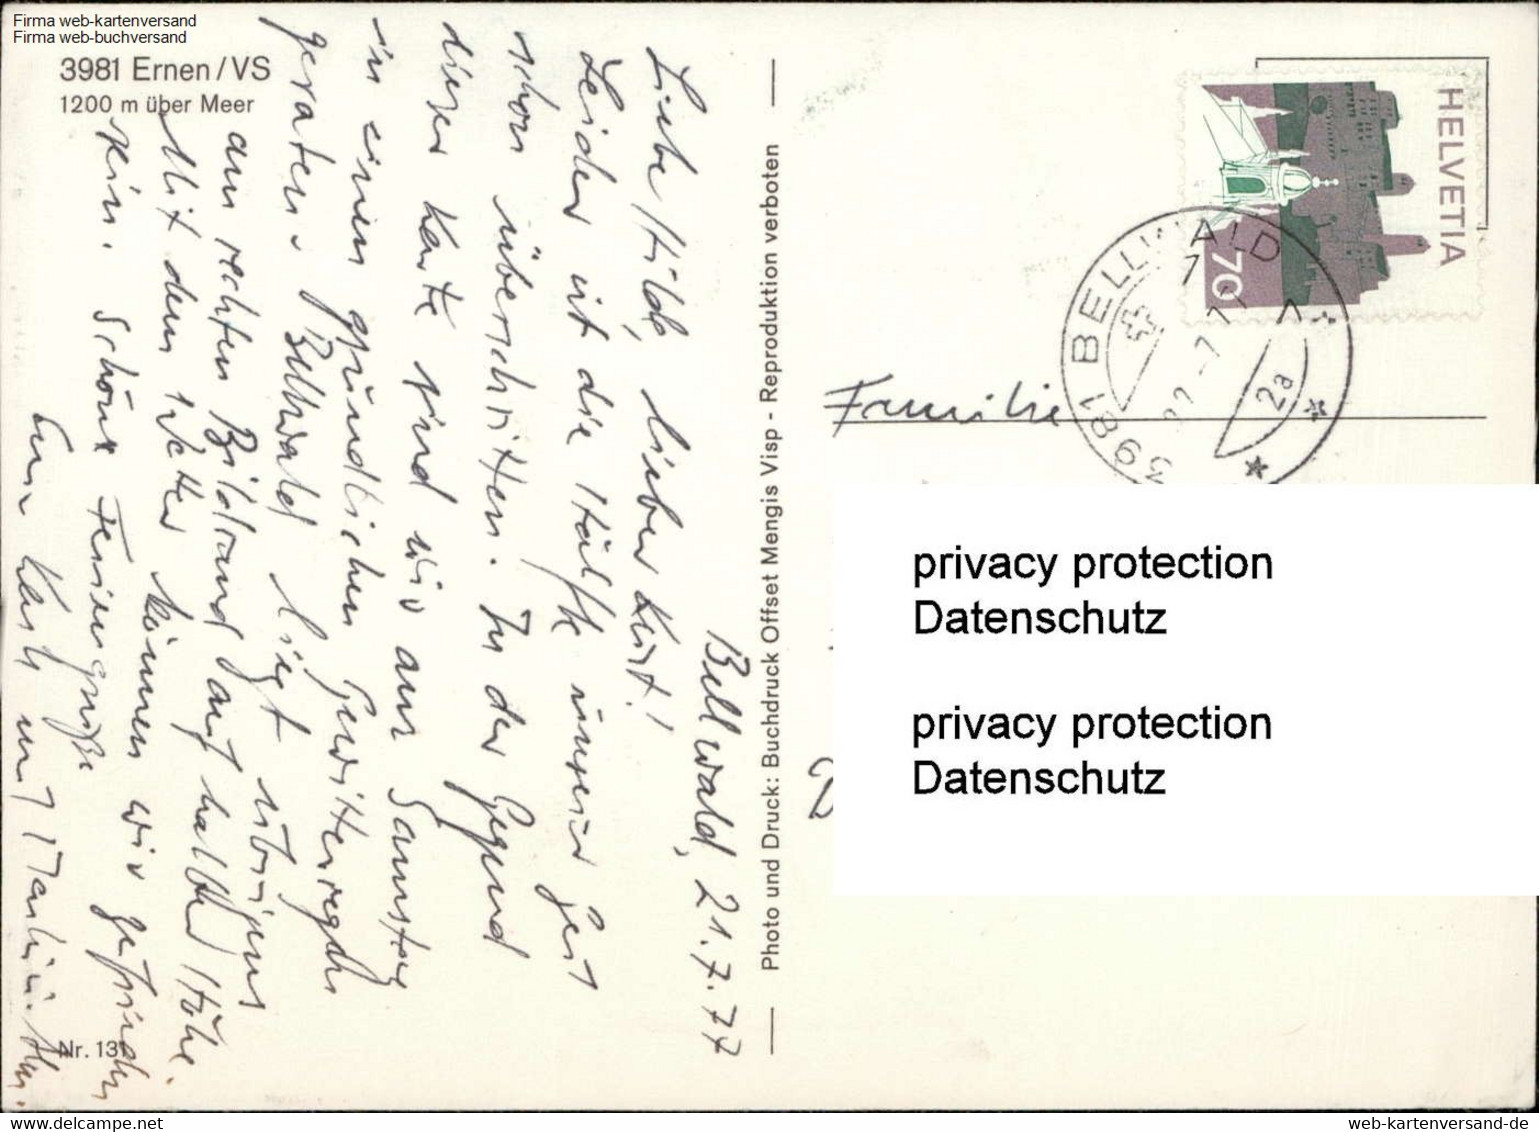 Firma web-kartenversand
Firma web-buchversand
3981 Ernen/VS
1200 m über Meer
Bellwald, 21.7.77
Liebe Hilde, lieber Kurt!
Leider ist die Hälfte unserer Zeit
schon überschritten. In der Gegend
dieser Karte sind wir am Samstag
in einen gründlichen Gewitterregen
geraten. Bellwald liegt übrigens
am rechten Bildrand auf halber Höhe.
Mit dem Wetter können wir zufrieden
sein. Schöne Feriengrüße
Eure Karli und
Nr. 131
Photo und Druck: Buchdruck Offset Mengis Visp - Reproduktion verboten
HELVETIA
70
3981 BELLWALD
2a
Familie
privacy protection
Datenschutz
privacy protection
Datenschutz
www.delcampe.net
web-kartenversand-de